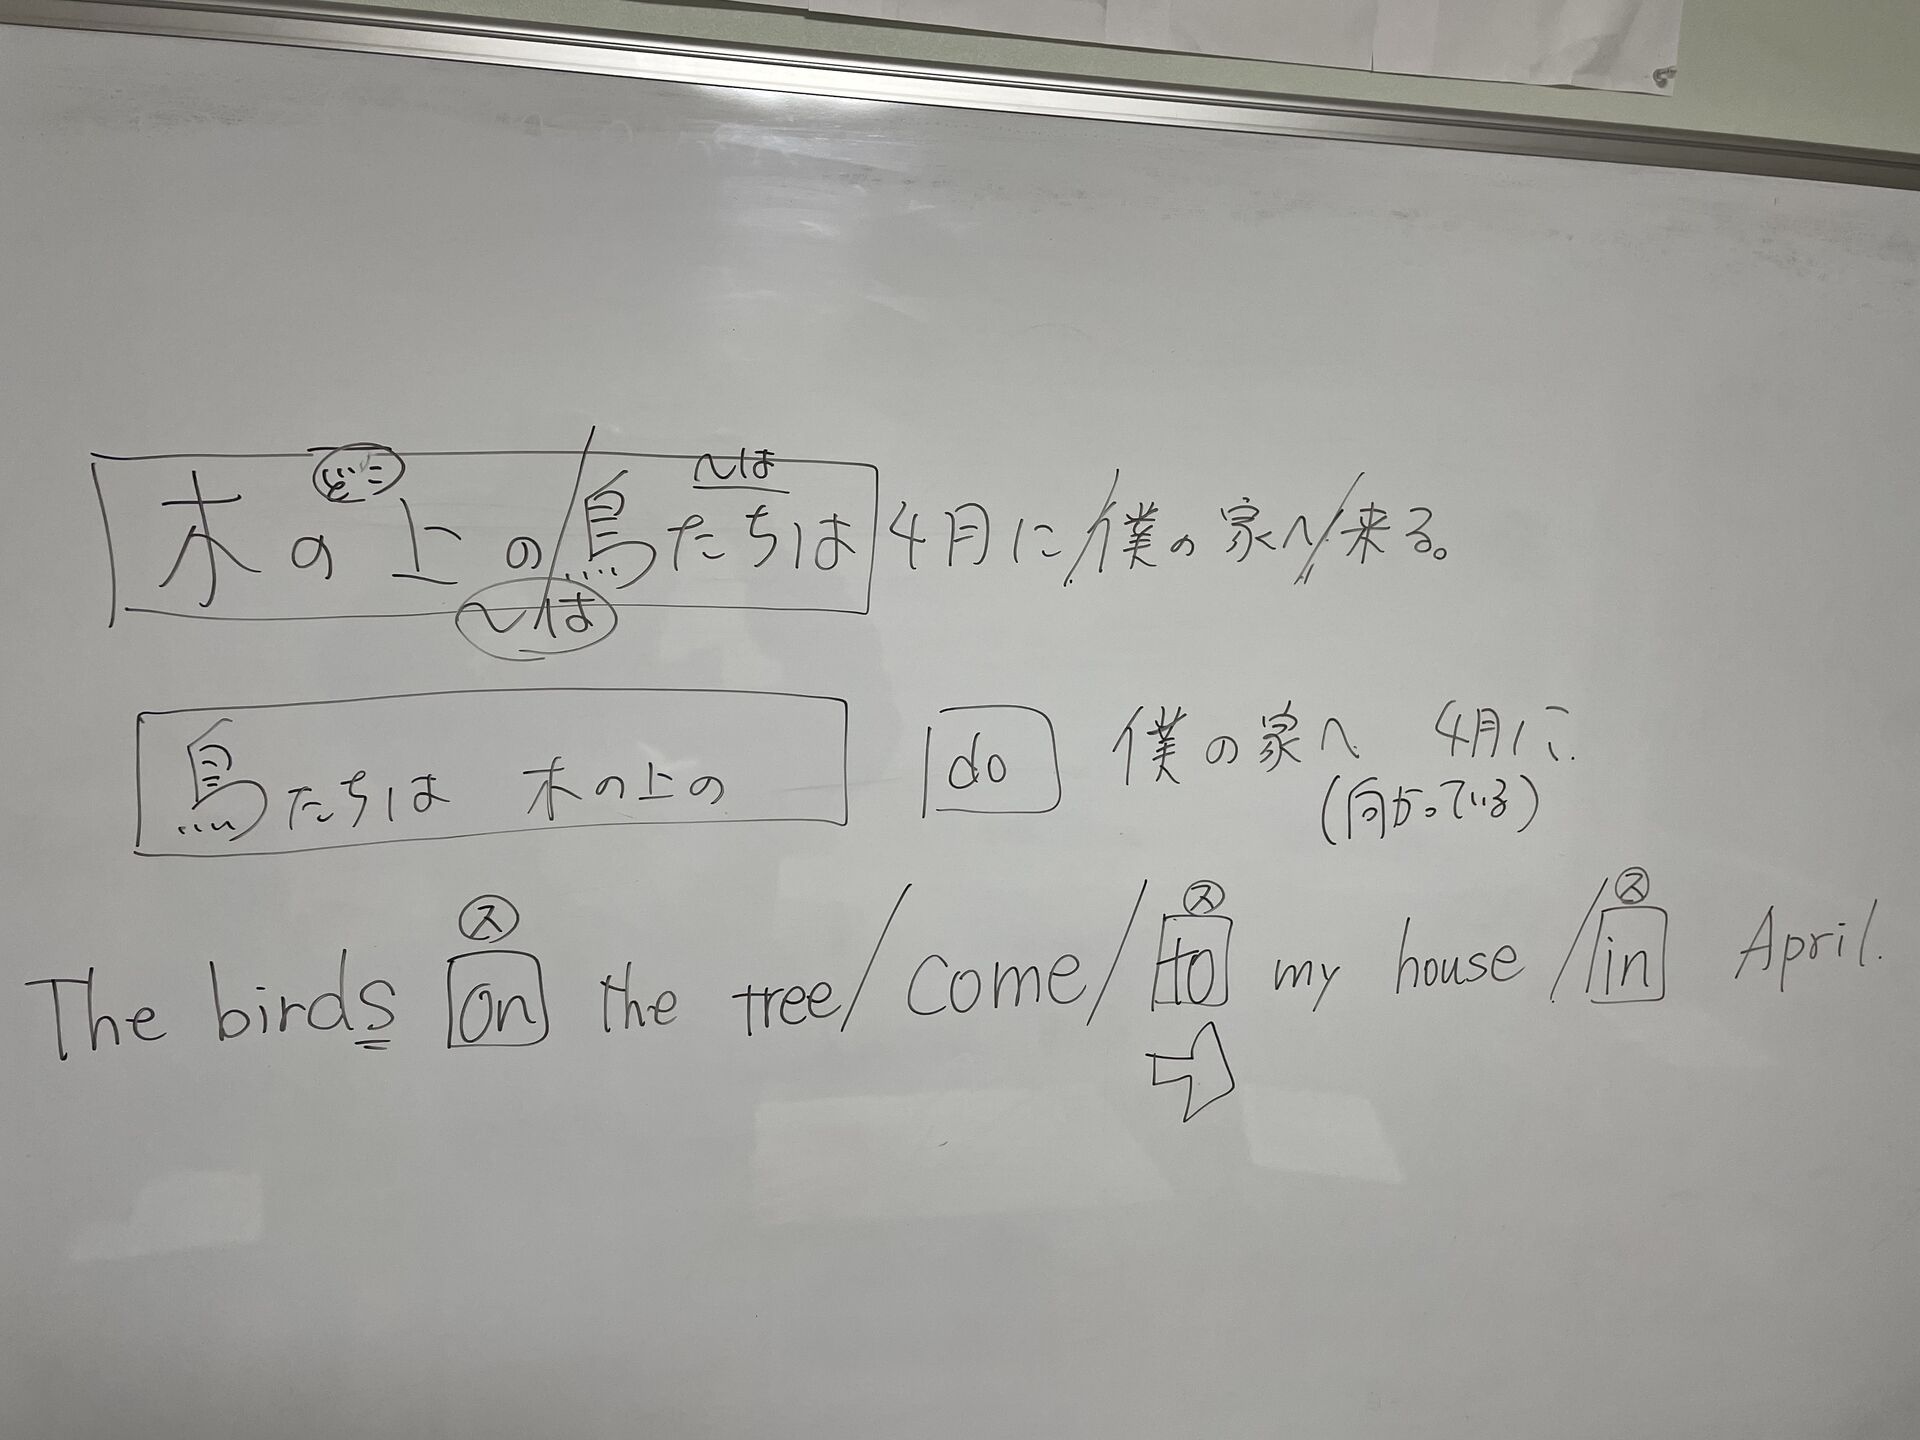 どこ 〜は
木の上の/鳥たちは 4月に/僕の家へ/来る。
〜は
鳥たちは 木の上の do 僕の家へ 4月に
(向かっている)
ス ス ス
The birds on the tree/come/to my house/in April.